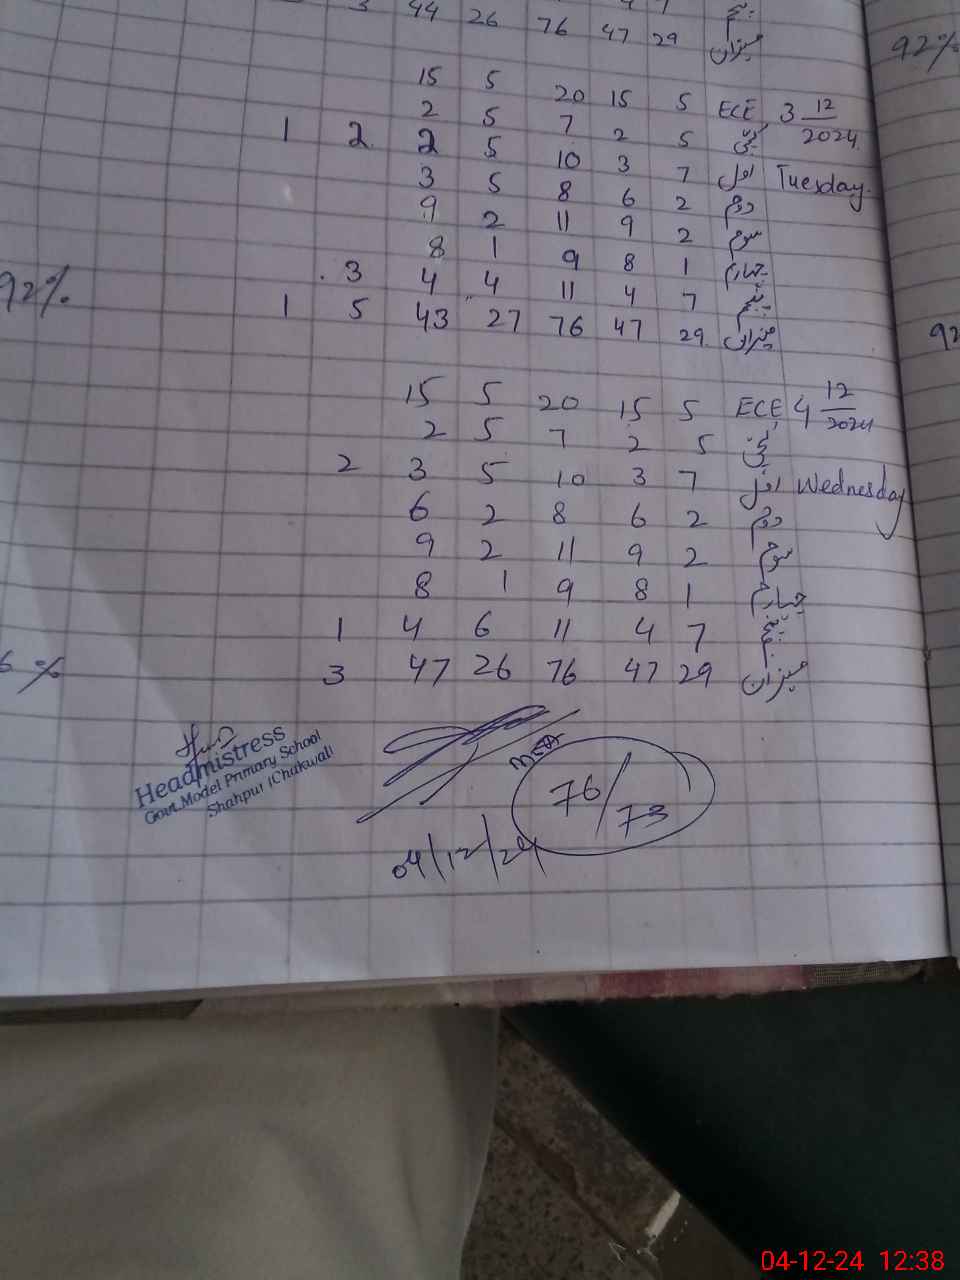 44 26 76 47 29 میزان
92%
15 5 20 15 5 ECE 3 12/2024
2 5 7 2 5 کچی
1 2 2 5 10 3 7 اول Tuesday
3 5 8 6 2 دوم
9 2 11 9 2 سوم
8 1 9 8 1 چہارم
3 4 4 11 4 7 پنجم
92% 1 5 43 27 76 47 29 میزان
15 5 20 15 5 ECE 4 12/2024
2 5 7 2 5 کچی
2 3 5 10 3 7 اول Wednesday
6 2 8 6 2 دوم
9 2 11 9 2 سوم
8 1 9 8 1 چہارم
1 4 6 11 4 7 پنجم
3 47 26 76 47 29 میزان
Headmistress
Govt. Model Primary School
Shahpur (Chakwal)
MEA
76/73
04/12/24
04-12-24 12:38